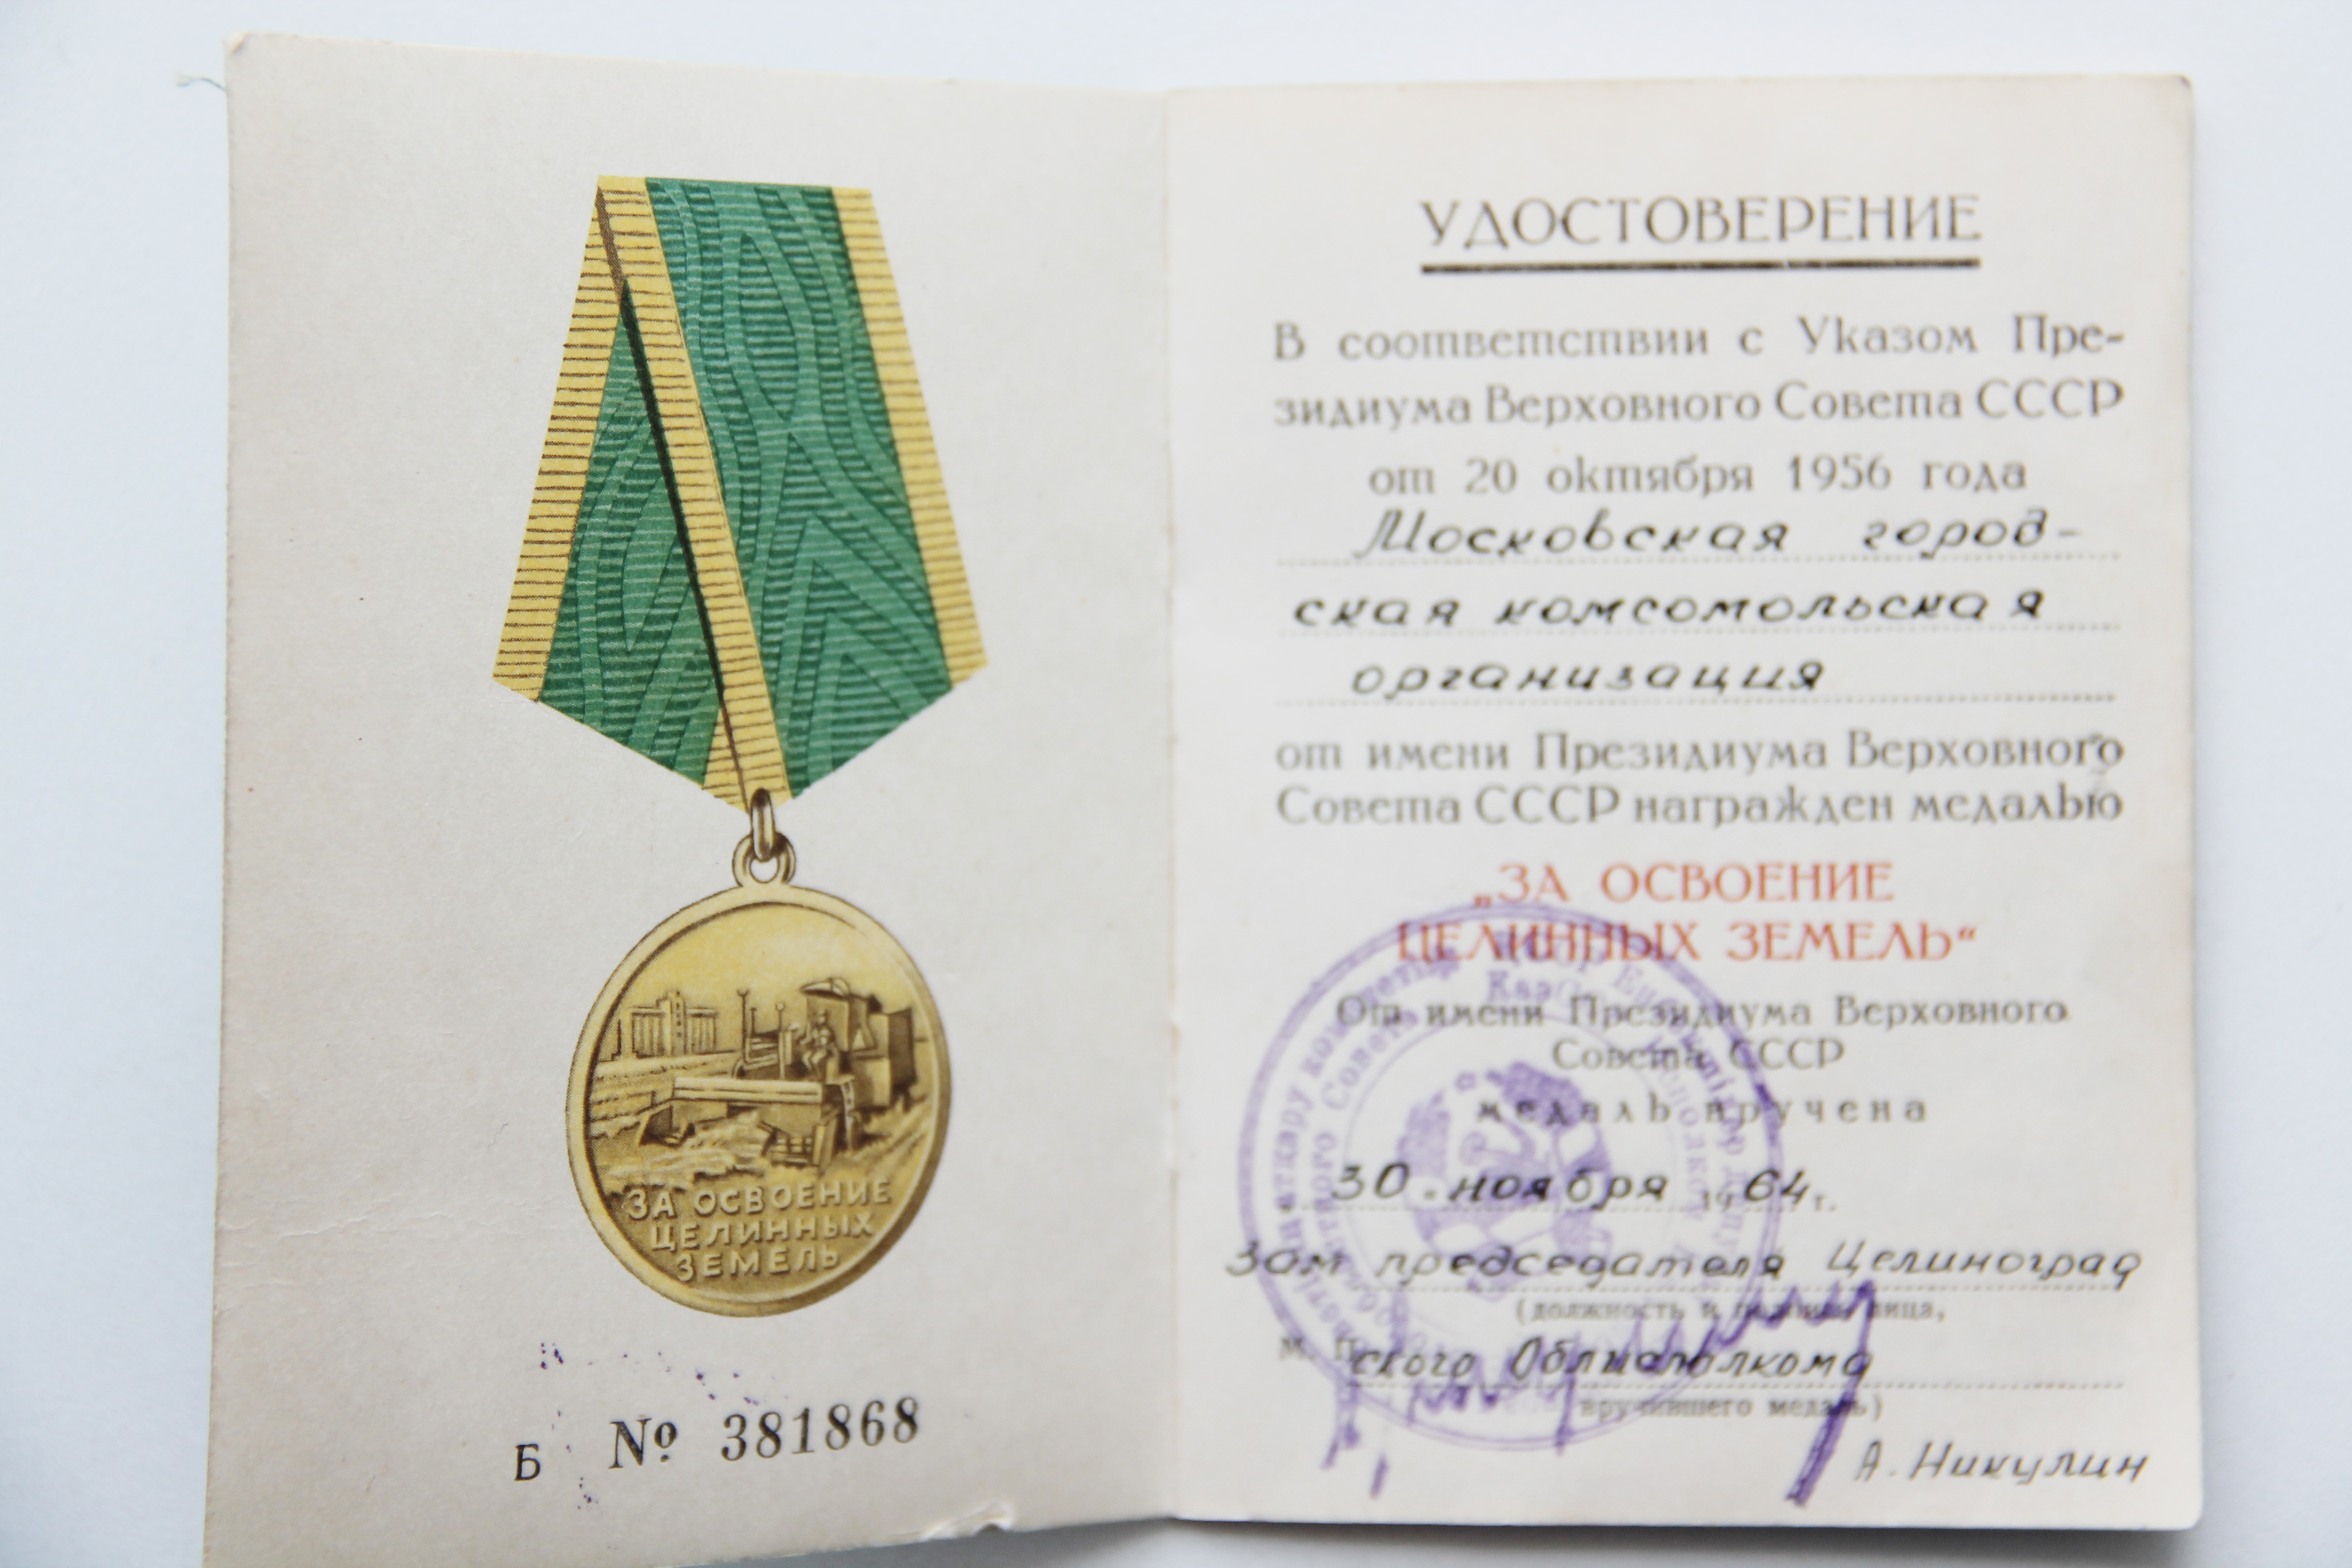 ЗА ОСВОЕНИЕ
ЦЕЛИННЫХ
ЗЕМЕЛЬ
Б № 381868
УДОСТОВЕРЕНИЕ
В соответствии с Указом Пре-
зидиума Верховного Совета СССР
от 20 октября 1956 года
Московская город-
ская комсомольская
организация
от имени Президиума Верховного
Совета СССР награжден медалью
„ЗА ОСВОЕНИЕ
ЦЕЛИННЫХ ЗЕМЕЛЬ“
От имени Президиума Верховного
Совета СССР
медаль вручена
30. ноября 1964 г.
Зам председателя Целиноград
(должность и подпись лица,
М. П.
ского Облисполкома
вручившего медаль)
А. Никулин